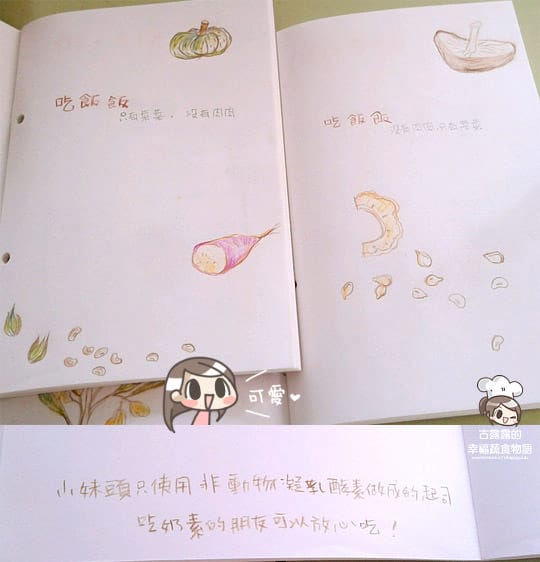 吃飯飯
只有菜菜，沒有肉肉
吃飯飯
沒有肉肉，只有菜菜
可愛
古露露的
幸福蔬食物語
小妹頭只使用非動物凝乳酵素做成的起司
吃奶素的朋友可以放心吃！